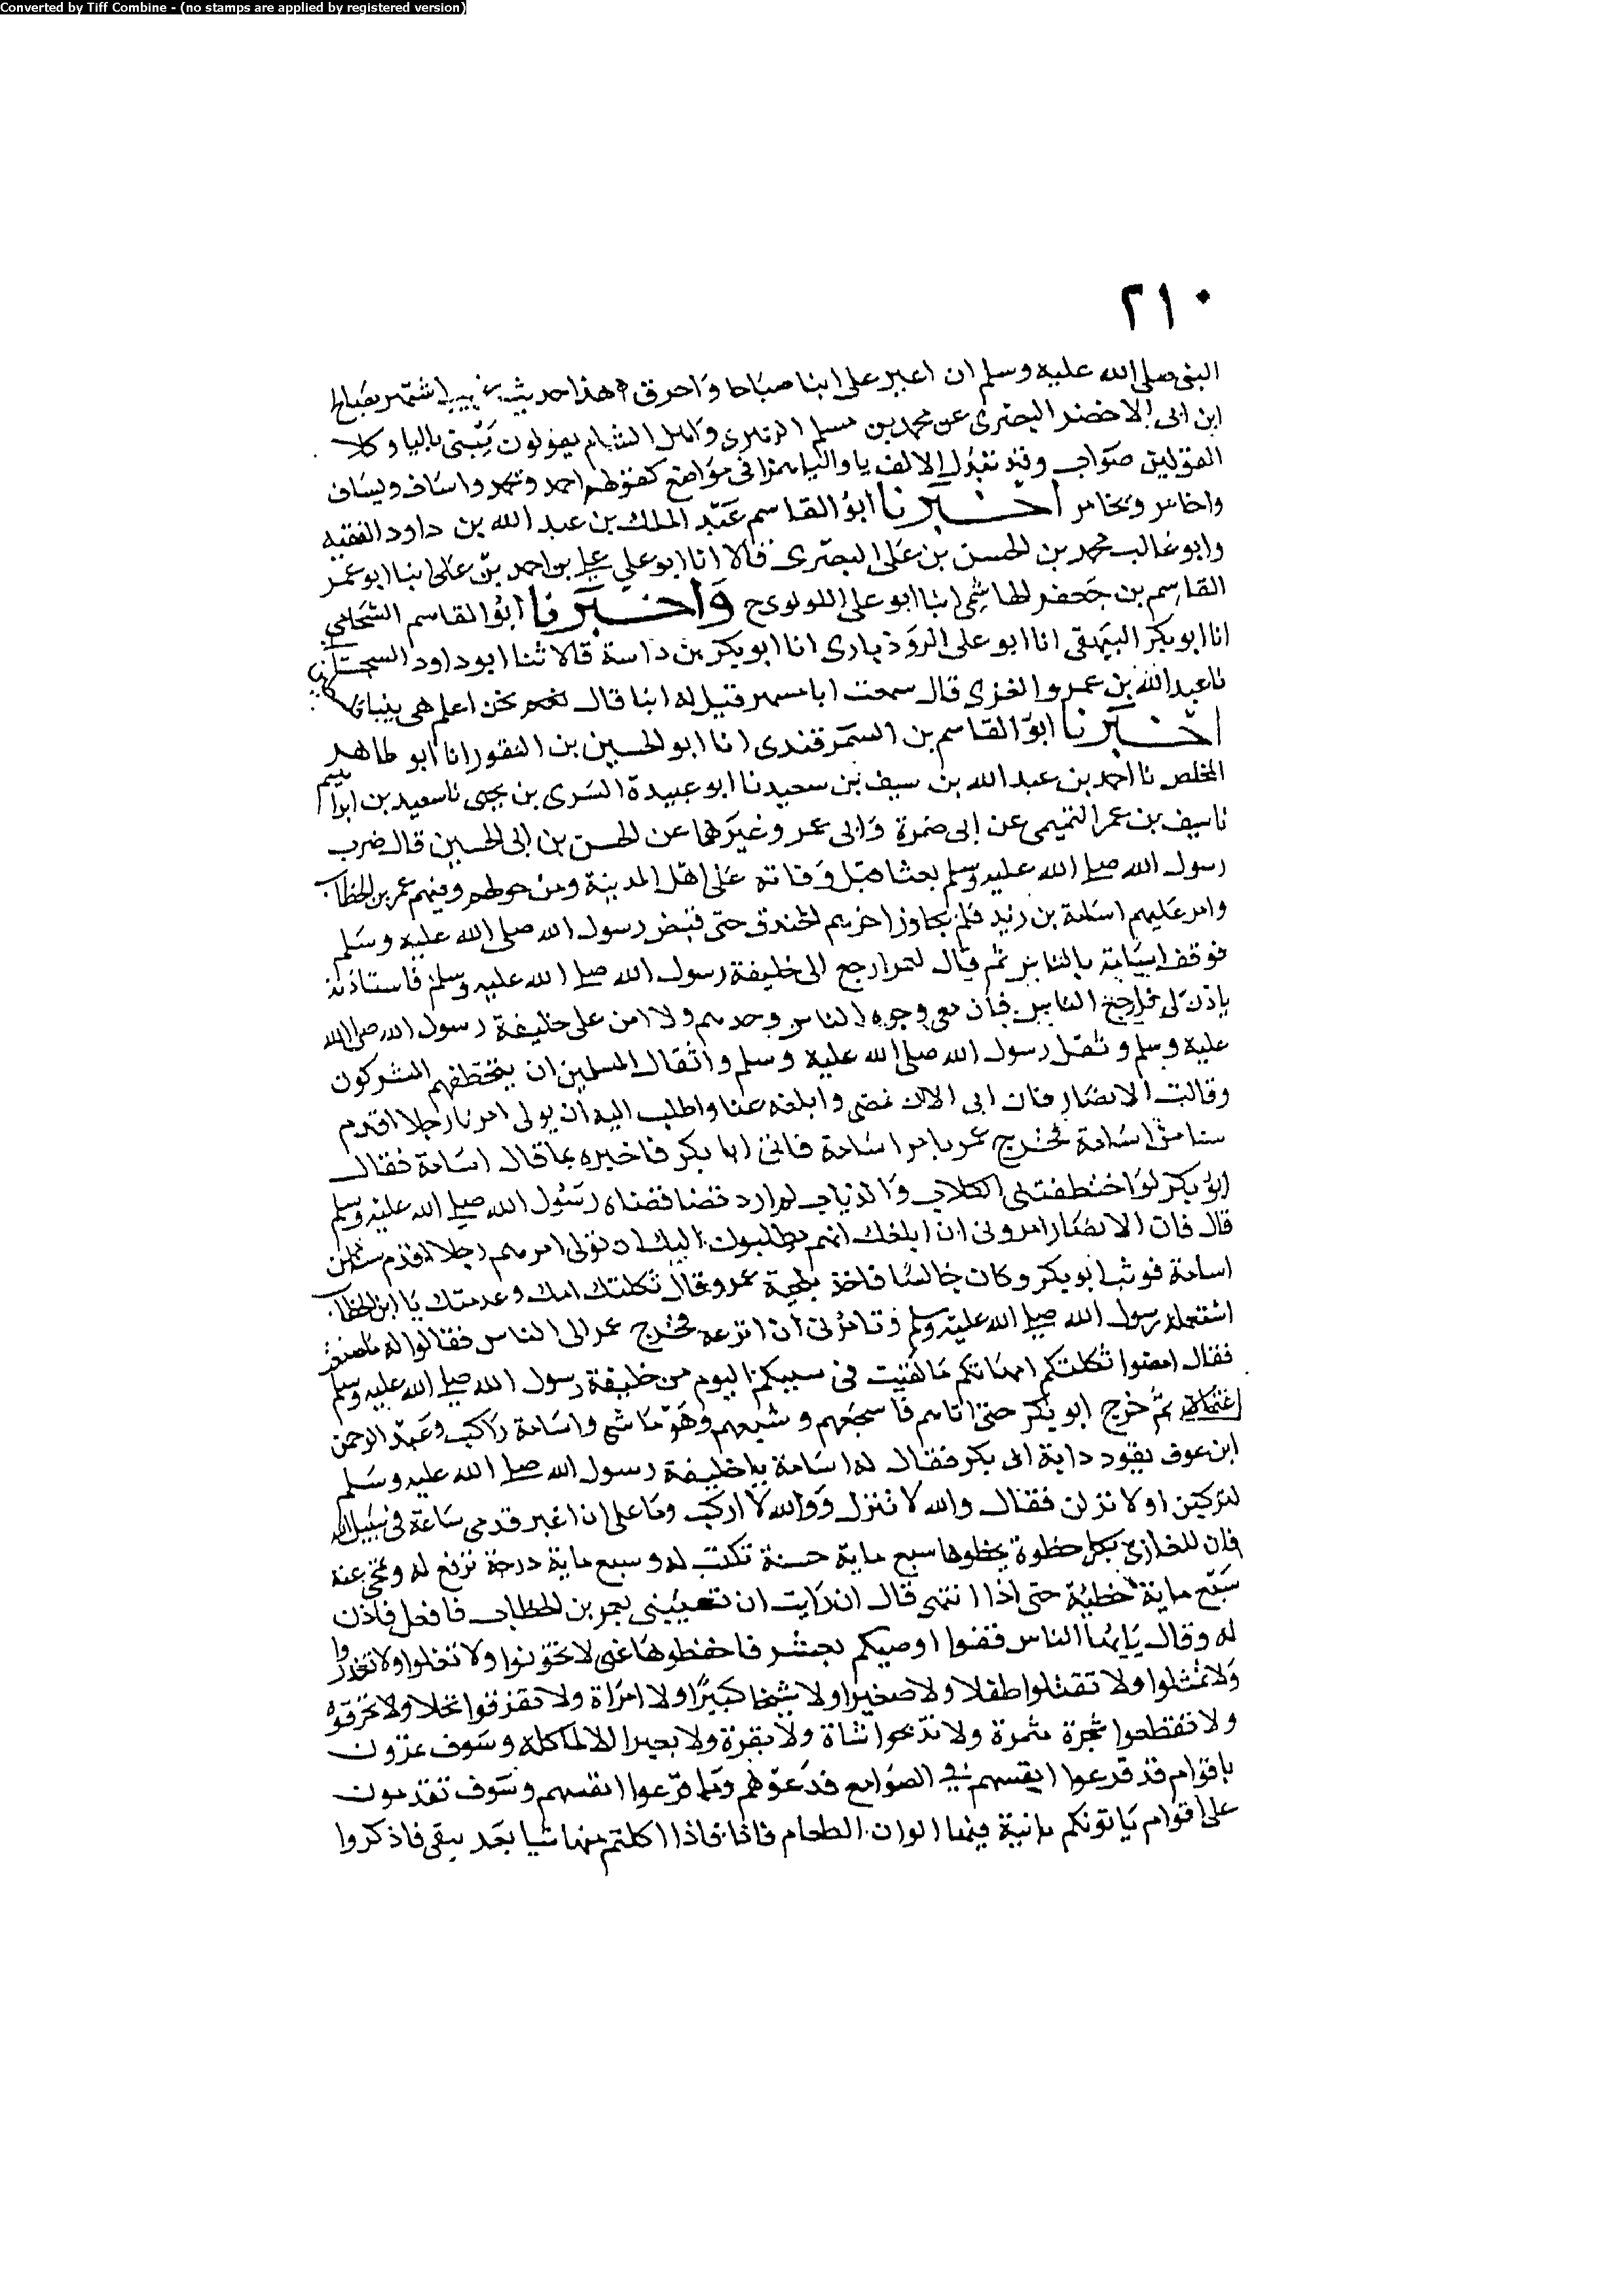 Converted by Tiff Combine - (no stamps are applied by registered version)
٢١٠
النبى صلى الله عليه وسلم ان اغير على ابنا صباحا واحرق هذا حديث غريب اشتهر بصالح
ابن ابى الاخضر البصرى عن محمد بن مسلم الزهرى واهل الشام يقولون يبنى باليا وكلا
القولين صواب وقد تبدل الالف يا واليا همزا فى مواضع كقولهم احمد ويحمد واساف ويساف
واخامر ويخامر اخبرنا ابو القاسم عبد الملك بن عبد الله بن داود الفقيه
وابو غالب محمد بن الحسن بن على البصرى قالا انا ابو علي علي بن احمد بن على ابنا ابو عمر
القاسم بن جعفر الهاشمى ابنا ابو على اللولوى ح واخبرنا ابو القاسم الشحامي
انا ابو بكر البيهقى انا ابو على الروذبارى انا ابو بكر بن داسة قالا ثنا ابو داود السجستاني
نا عبد الله بن عمرو الغزى قال سمعت ابا مسهر قيل له ابنا قال نحن اعلم هى يبنا
اخبرنا ابو القاسم بن السمرقندى انا ابو الحسين بن النقور انا ابو طاهر
المخلص نا احمد بن عبد الله بن سيف بن سعيد نا ابو عبيدة السرى بن يحيى نا سعيد بن ابراهيم
نا سيف بن عمر التميمى عن ابى ضمرة وابى عمرو وغيرهما عن الحسن بن ابى الحسين قال ضرب
رسول الله صلى الله عليه وسلم بعثا قبل وفاته على اهل المدينة ومن حولهم وفيهم عمر بن الخطاب
وامر عليهم اسامة بن زيد فلم يجاوز اخرهم الخندق حتى قبض رسول الله صلى الله عليه وسلم
فوقف اسامة بالناس ثم قال لعمر ارجع الى خليفة رسول الله صلى الله عليه وسلم فاستاذنه
ياذن لى فارجع الناس فان معى وجوه الناس وحدهم ولا امن على خليفة رسول الله صلى الله
عليه وسلم وثقل رسول الله صلى الله عليه وسلم واثقال المسلمين ان يتخطفهم المشركون
وقالت الانصار فان ابى الا ان نمضى وابلغه عنا واطلب اليه ان يولى امرنا رجلا اقدم
سنا من اسامة فخرج عمر بامر اسامة فاتى ابا بكر فاخبره بما قال اسامة فقال
ابو بكر لو اختطفتنى الكلاب والذياب لم ارد قضا قضاه رسول الله صلى الله عليه وسلم
قال فان الانصار امرونى ان ابلغك انهم يطلبون اليك ان تولى امرهم رجلا اقدم سنا من
اسامة فوثب ابو بكر وكان جالسا فاخذ بلحية عمر وقال ثكلتك امك وعدمتك يا ابن الخطاب
استعمله رسول الله صلى الله عليه وسلم وتامرنى ان انزعه فخرج عمر الى الناس فقالوا له ما صنعت
فقال امضوا ثكلتكم امهاتكم ما لقيت فى سببكم اليوم من خليفة رسول الله صلى الله عليه وسلم
ثم خرج ابو بكر حتى اتاهم فاشخصهم وشيعهم وهو ماشى واسامة راكب وعبد الرحمن
ابن عوف يقود دابة ابى بكر فقال له اسامة يا خليفة رسول الله صلى الله عليه وسلم
لتركبن او لانزلن فقال والله لا تنزل ووالله لا اركب وما على ان اغبر قدمى ساعة فى سبيل الله
فان للغازى بكل خطوة يخطوها سبع ماية حسنة تكتب له وسبع ماية درجة ترفع له وتمحى عنه
سبع ماية خطئية حتى اذا انتهى قال ان رايت ان تعيننى بعمر بن الخطاب فافعل فاذن
له وقال يايها الناس قفوا اوصيكم بعشر فاحفظوها عنى لا تخونوا ولا تغلوا ولا تغدروا
ولا تمثلوا ولا تقتلوا طفلا ولا صغيرا ولا شيخا كبيرا ولا امراة ولا تعزقوا نخلا ولا تحرقوه
ولا تقطعوا شجرة مثمرة ولا تذبحوا شاة ولا بقرة ولا بعيرا الا لماكله وسوف تمرون
باقوام قد فرغوا انفسهم في الصوامع فدعوهم وما فرغوا انفسهم وسوف تقدمون
على اقوام ياتونكم بانية فيها الوان الطعام فاذا فاذا اكلتم منها شيا بعد شى فاذكروا